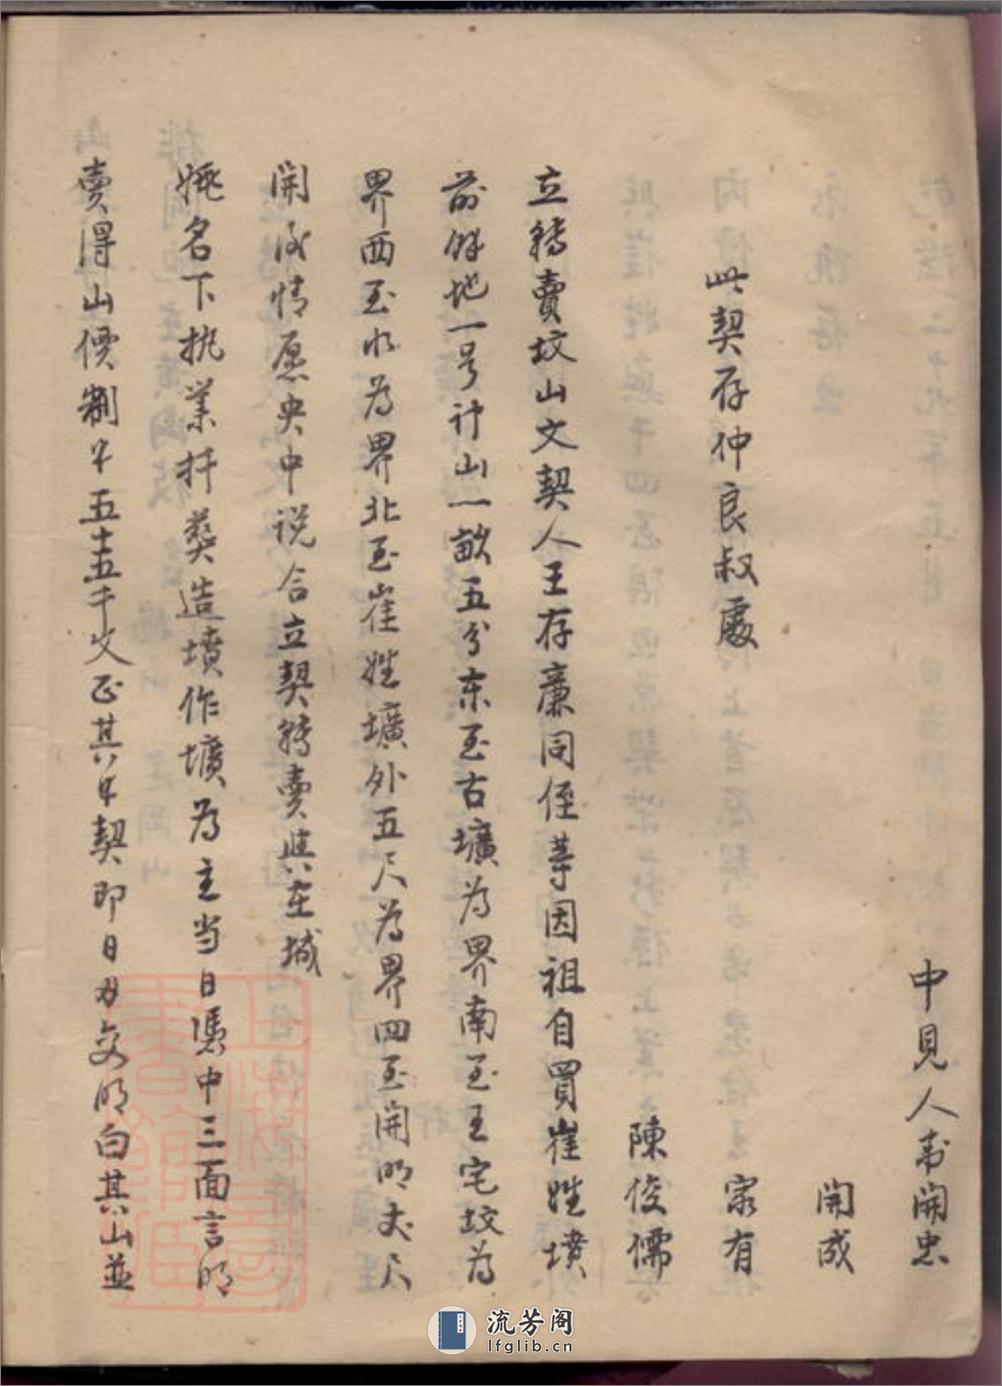 中見人 開忠
開成
家有
此契存仲良叔處
陳俊儒
立轉賣坟山文契人王存廉同侄等因祖自買崔姓墳
前餘地一号计山一畝五分东至古壙为界南至王宅坟为
界西至水为界北至崔姓壙外五尺为界四至開明丈尺
開成情愿央中说合立契转賣與在城
姚名下执業扦葬造墳作壙为主当日憑中三面言明
賣得山價制 五十五千文正其 契即日 交明白其山並
流芳阁
lfglib.cn